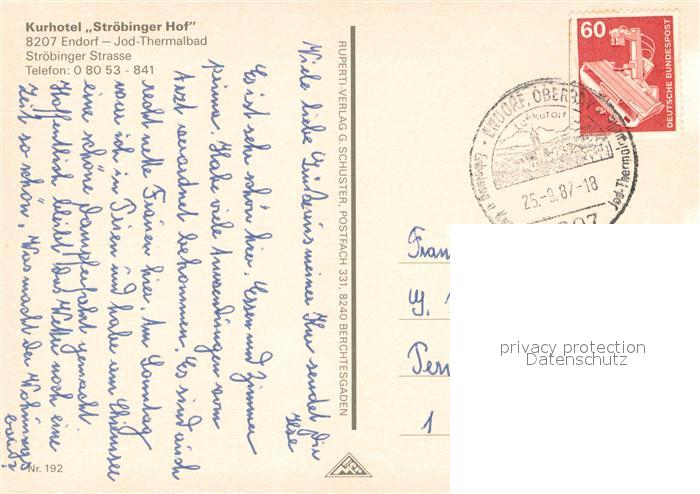 Kurhotel „Ströbinger Hof"
8207 Endorf – Jod-Thermalbad
Ströbinger Strasse
Telefon: 0 80 53 - 841
Es ist sehr schön hier. Essen und Zimmer
prima. Habe viele Anwendungen vom
Arzt verordnet bekommen. Es sind auch
recht nette Frauen hier. Am Sonntag
war ich in Prien und habe am Chiemsee
eine schöne Dampferfahrt gemacht.
Hoffentlich bleibt das Wetter noch eine
Zeit so schön. Was macht der Wohnungs
bau?
Viele liebe Grüße aus meiner Kur sendet Dir
Ilse
Nr. 192
RUPERTI-VERLAG G. SCHUSTER, POSTFACH 331, 8240 BERCHTESGADEN
60
DEUTSCHE BUNDESPOST
ENDORF, OBERBAY
Luftkurort
Jod-Thermal
25.-9.87-18
8207
Fran
W.
1
privacy protection
Datenschutz